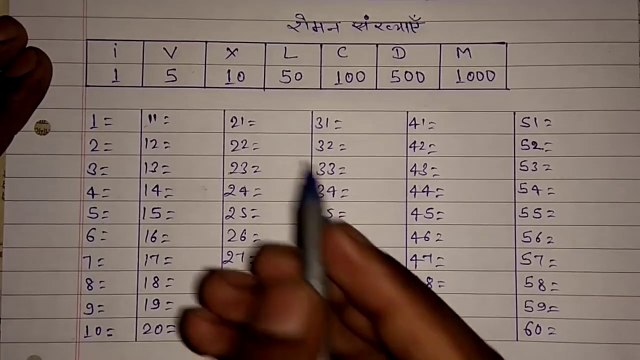 रोमन संख्याएँ
i V X L C D M
1 5 10 50 100 500 1000
1= 11= 21= 31= 41= 51=
2= 12= 22= 32= 42= 52=
3= 13= 23= 33= 43= 53=
4= 14= 24= 34= 44= 54=
5= 15= 25= 45= 55=
6= 16= 26= 46= 56=
7= 17= 27= 47= 57=
8= 18= 58=
9= 19= 59=
10= 20= 60=